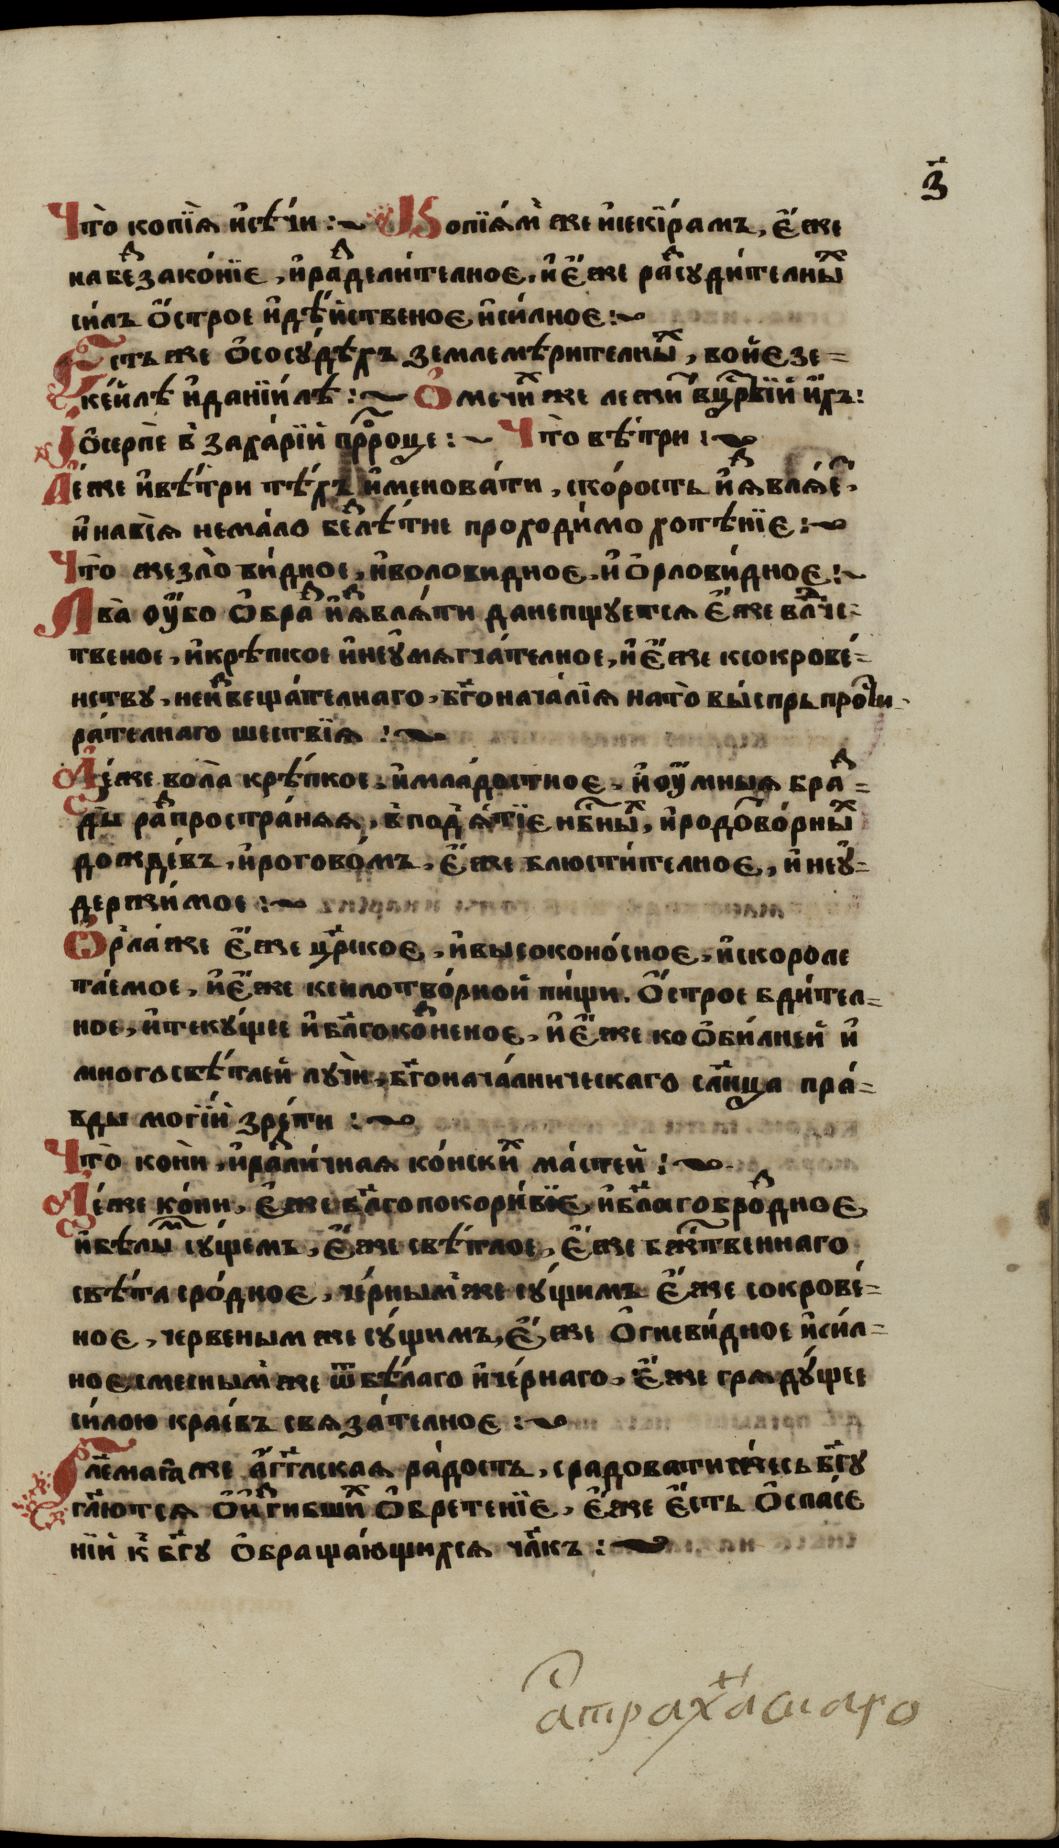 з҃
Что̀ копїѧ̀ и҆сѣ́чи :~ Копїѧ́мⸯ же и҆секїрамъ, є҆́же
на беⷥзако́нїе, и҆раⷥдели́телное, и҆ є҆́же раⷥсуди́телныⷯ
си́лъ ѻ҆́строе и҆дѣ́йственое и҆си́лное :~
Єсть же ѻ҆сосу́дѣхъ землемѣрителныⷯ, во и҆єзе=
кеи́лѣ и҆данїи́лѣ :~ Ѻ҆ мечиⷯ же лежиⷮ вцⷭ҇рвїи и҆́хъ:
І҆ ѻ҆серпѐ в заха́рїи прⷪ҇роце :~ Что̀ вѣ́три :~
А҆́еже и҆вѣ́три тѣ́хъ и҆менова́ти, ско́рость и҆ꙗ҆влѧ́еⷮ,
и҆ на всѧ̀ нема́ло беⷥлѣ́тне проходи́мо хотѣ́нїе :~
Что̀ жезло ви́дное, и҆воловидное, и҆ ѻ҆рлови́дное :~
Лва̀ оу҆́бо ѻ҆́браⷥ и҆ꙗ҆влѧ́ти да непщуетсѧ є҆́же влⷣче=
твеное, и҆крѣ́пкое и҆неꙋ҆мѧгча́телное, и҆ є҆́же ксокрове́=
нству, неиⷥвеща́телнаго, бг҃онача́лїѧ на то̀ вы́спрь прости=
ра́телнаго шествїѧ :~
А҆́еже вола̀ крѣ́пкое, и҆мла́достное, и҆оу҆́мныѧ браⷥ=
ды̀ раⷥпространѧ́ѧ, в̾под̾ѧ́тїе нбⷭ҇ныⷯ, и҆родⸯово́рныⷯ
дожде́въ, и҆рогово́мъ, є҆́же блюсти́телное, и҆ неꙋ҆=
держи́мое :~
Ѻ҆рла́ же є҆́же цр҃ское, и҆высоконо́сное, и҆скороле
та́емое, и҆ є҆́же ксилотво́рной пи́щи. ѻ҆́строе бди́тел=
ное, и҆теку́щее и҆бл҃гоко́ⷥненое, и҆ є҆́же ко ѻ҆би́лней и҆
многосвѣ́тлей лучѝ, бг҃онача́лническаго сл҃нца пра́=
вды могі́й зрѣ́ти :~
Что̀ ко́ни, и҆раⷥли́чная ко́нскиⷯ ма́стей :~
А҆́еже ко́ни, є҆́же бл҃гопокори́вїе, и҆бл҃агоброⷣдное
и҆бѣ́лыⷨ су́щемъ, є҆́же свѣ́тлое, є҆́же бжⷭ҇твеннаго
свѣ́та сро́дное, че́рнымⸯ же су́щимъ є҆́же сокрове́=
ное, червенымже су́щимъ, є҆́же ѻ҆гневи́дное и҆си́л=
ное смеснымⸯ же ѿбѣ́лаго и҆че́рнаго, є҆́же грѧду́щее
си́лою крае́въ свѧза́телное :~
Гл҃емагѡ же а҆́гг҃лская ра́дость, срадоватижесь бг҃у
гл҃ютсѧ ѻ҆и҆ⷥгибшиⷯ ѻ҆бретенїе, є҆́же є҆́сть ѻ҆спасе
нїи к̾ бг҃у ѻ҆браща́ющихсѧ чл҃къ :~